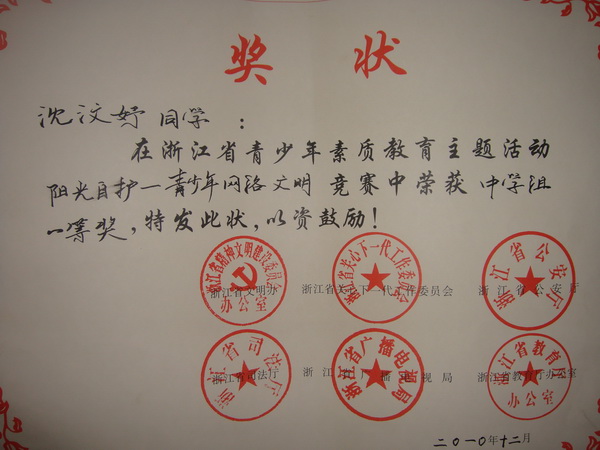 奖状
沈汶妤 同学：
在浙江省青少年素质教育主题活动
阳光自护一青少年网络文明 竞赛中荣获 中学组
一等奖，特发此状，以资鼓励！
浙江省精神文明建设委员会
办公室
浙江省关心下一代工作委员会
浙江省公安厅
浙江省文明办 浙江省关心下一代工作委员会 浙江省公安厅
浙江省司法厅
浙江省广播电视局
浙江省教育厅
办公室
浙江省司法厅 浙江省广播电视局 浙江省教育厅办公室
二〇一〇年十二月